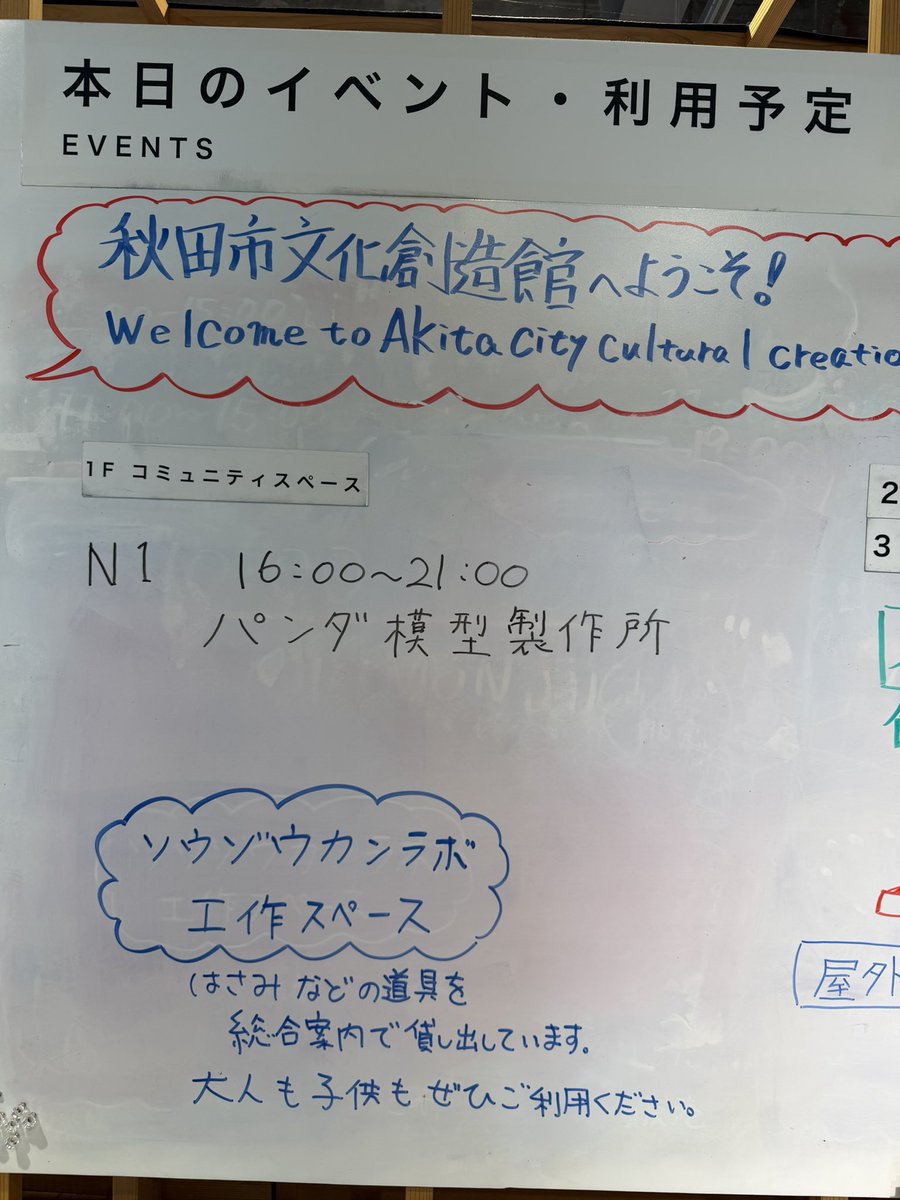 本日のイベント・利用予定
EVENTS
秋田市文化創造館へようこそ!
Welcome to Akita City Cultural creatio
1F コミュニティスペース
N1 16:00~21:00
パンダ模型製作所
ソウゾウカンラボ
工作スペース
はさみなどの道具を
総合案内で貸し出しています。
大人も子供もぜひご利用ください。
2
3
屋外